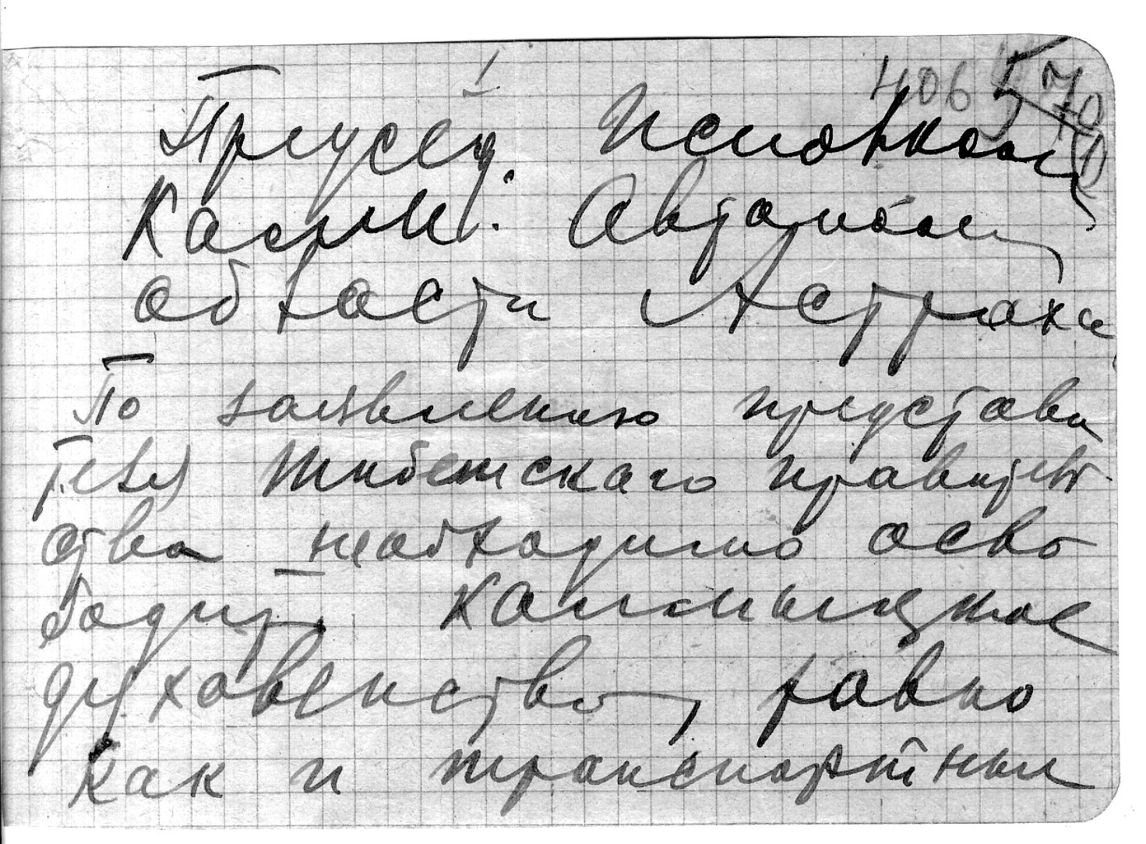 406 570
Председ. Исполкома
Калм. Автоном
области Астрахань
По заявлению представи
теля Тибетского правитель
ства необходимо осво
бодить Калмыцкое
духовенство, равно
как и транспортные